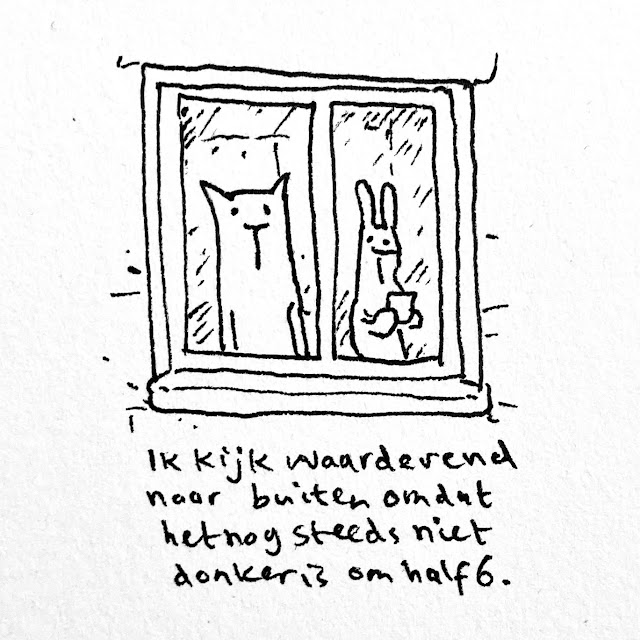 Ik kijk waarderend
naar buiten omdat
het nog steeds niet
donker is om half 6.